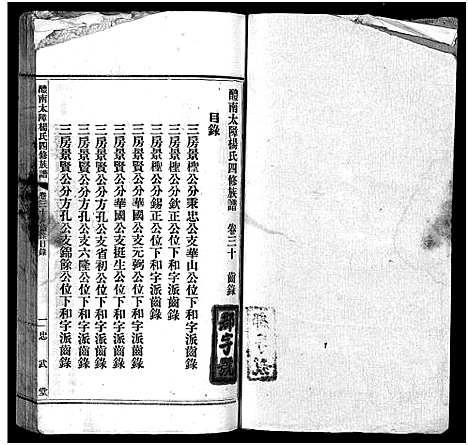 醴南太障楊氏四修族譜 卷三十 齒錄
目錄
三房景樫公分秉忠公支華山公位下和字派齒錄
三房景樫公分欽正公位下和字派齒錄
三房景樫公分錫正公位下和字派齒錄
三房景賢公分華國公支元弼公位下和字派齒錄
三房景賢公分華國公支挺生公位下和字派齒錄
三房景賢公分方孔公支省初公位下和字派齒錄
三房景賢公分方孔公支六隆公位下和字派齒錄
三房景賢公分方孔公支錦餘公位下和字派齒錄
醴南太障楊氏四修族譜
卷三十
目錄
一
忠武堂
字號